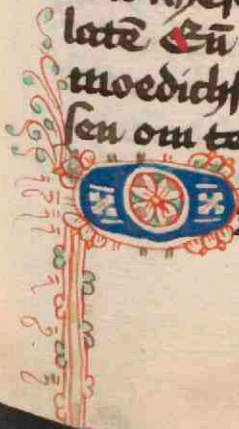 latē Eñ
moedichs
sen om te